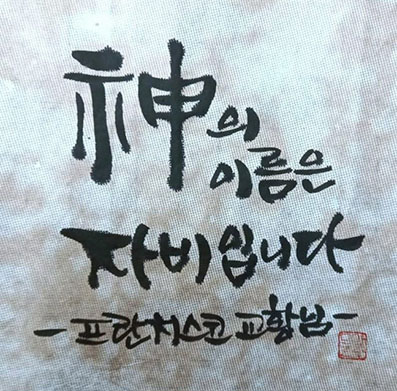 神의
이름은
자비입니다
- 프란치스코 교황님 -